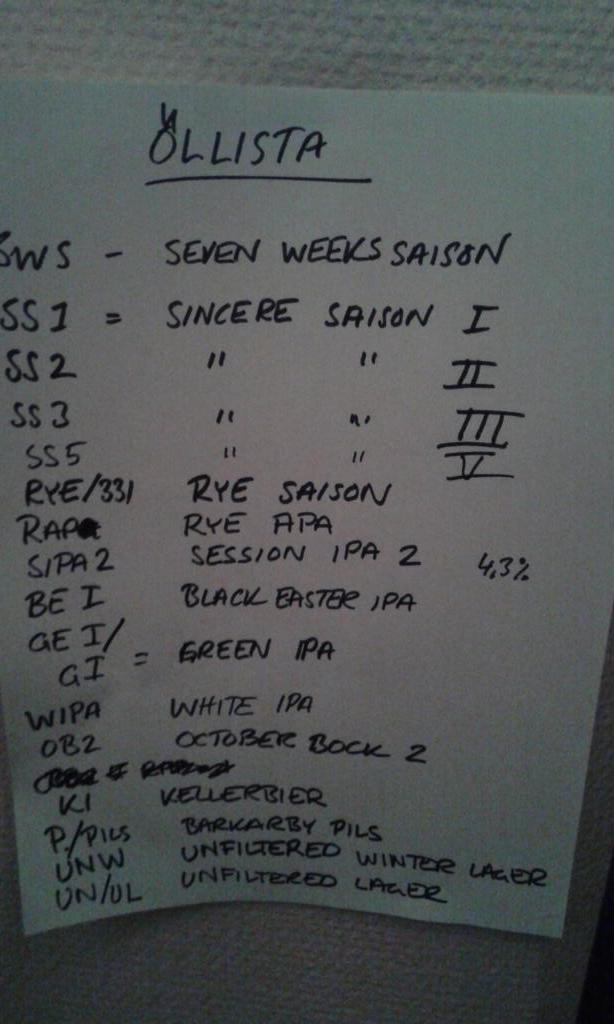 ÖLLISTA
SWS - SEVEN WEEKS SAISON
SS1 = SINCERE SAISON I
SS2 " " II
SS3 " " III
SS5 " " V
RYE/331 RYE SAISON
RAPA RYE APA
SIPA2 SESSION IPA 2 4,3%
BE I BLACK EASTER IPA
GE I/
GI = GREEN IPA
WIPA WHITE IPA
OB2 OCTOBER BOCK 2
KI KELLERBIER
P./PILS BARKARBY PILS
UNW UNFILTERED WINTER LAGER
UN/UL UNFILTERED LAGER